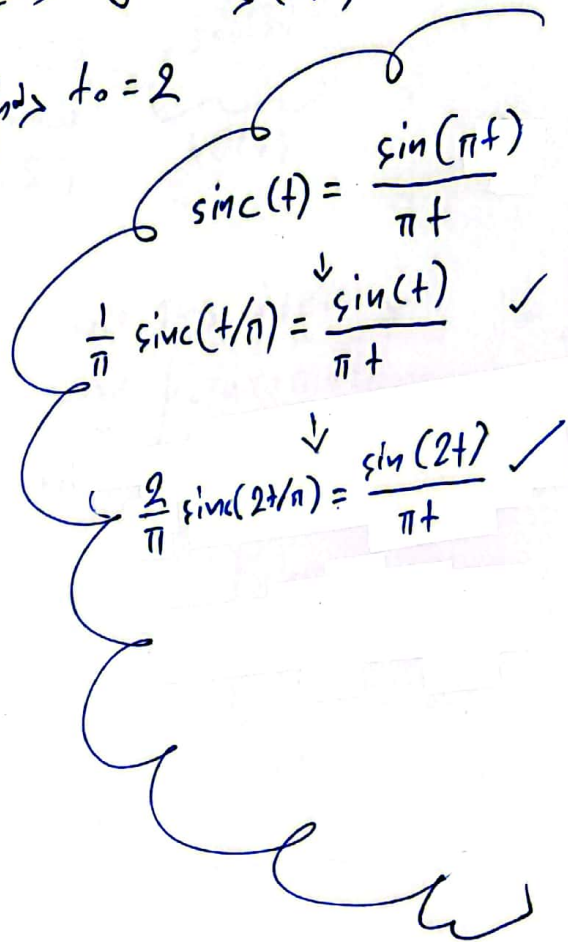 t₀ = 2
sinc(t) = sin(πt) / πt
↓
1/π sinc(t/π) = sin(t) / πt ✓
↓
2/π sinc(2t/π) = sin(2t) / πt ✓